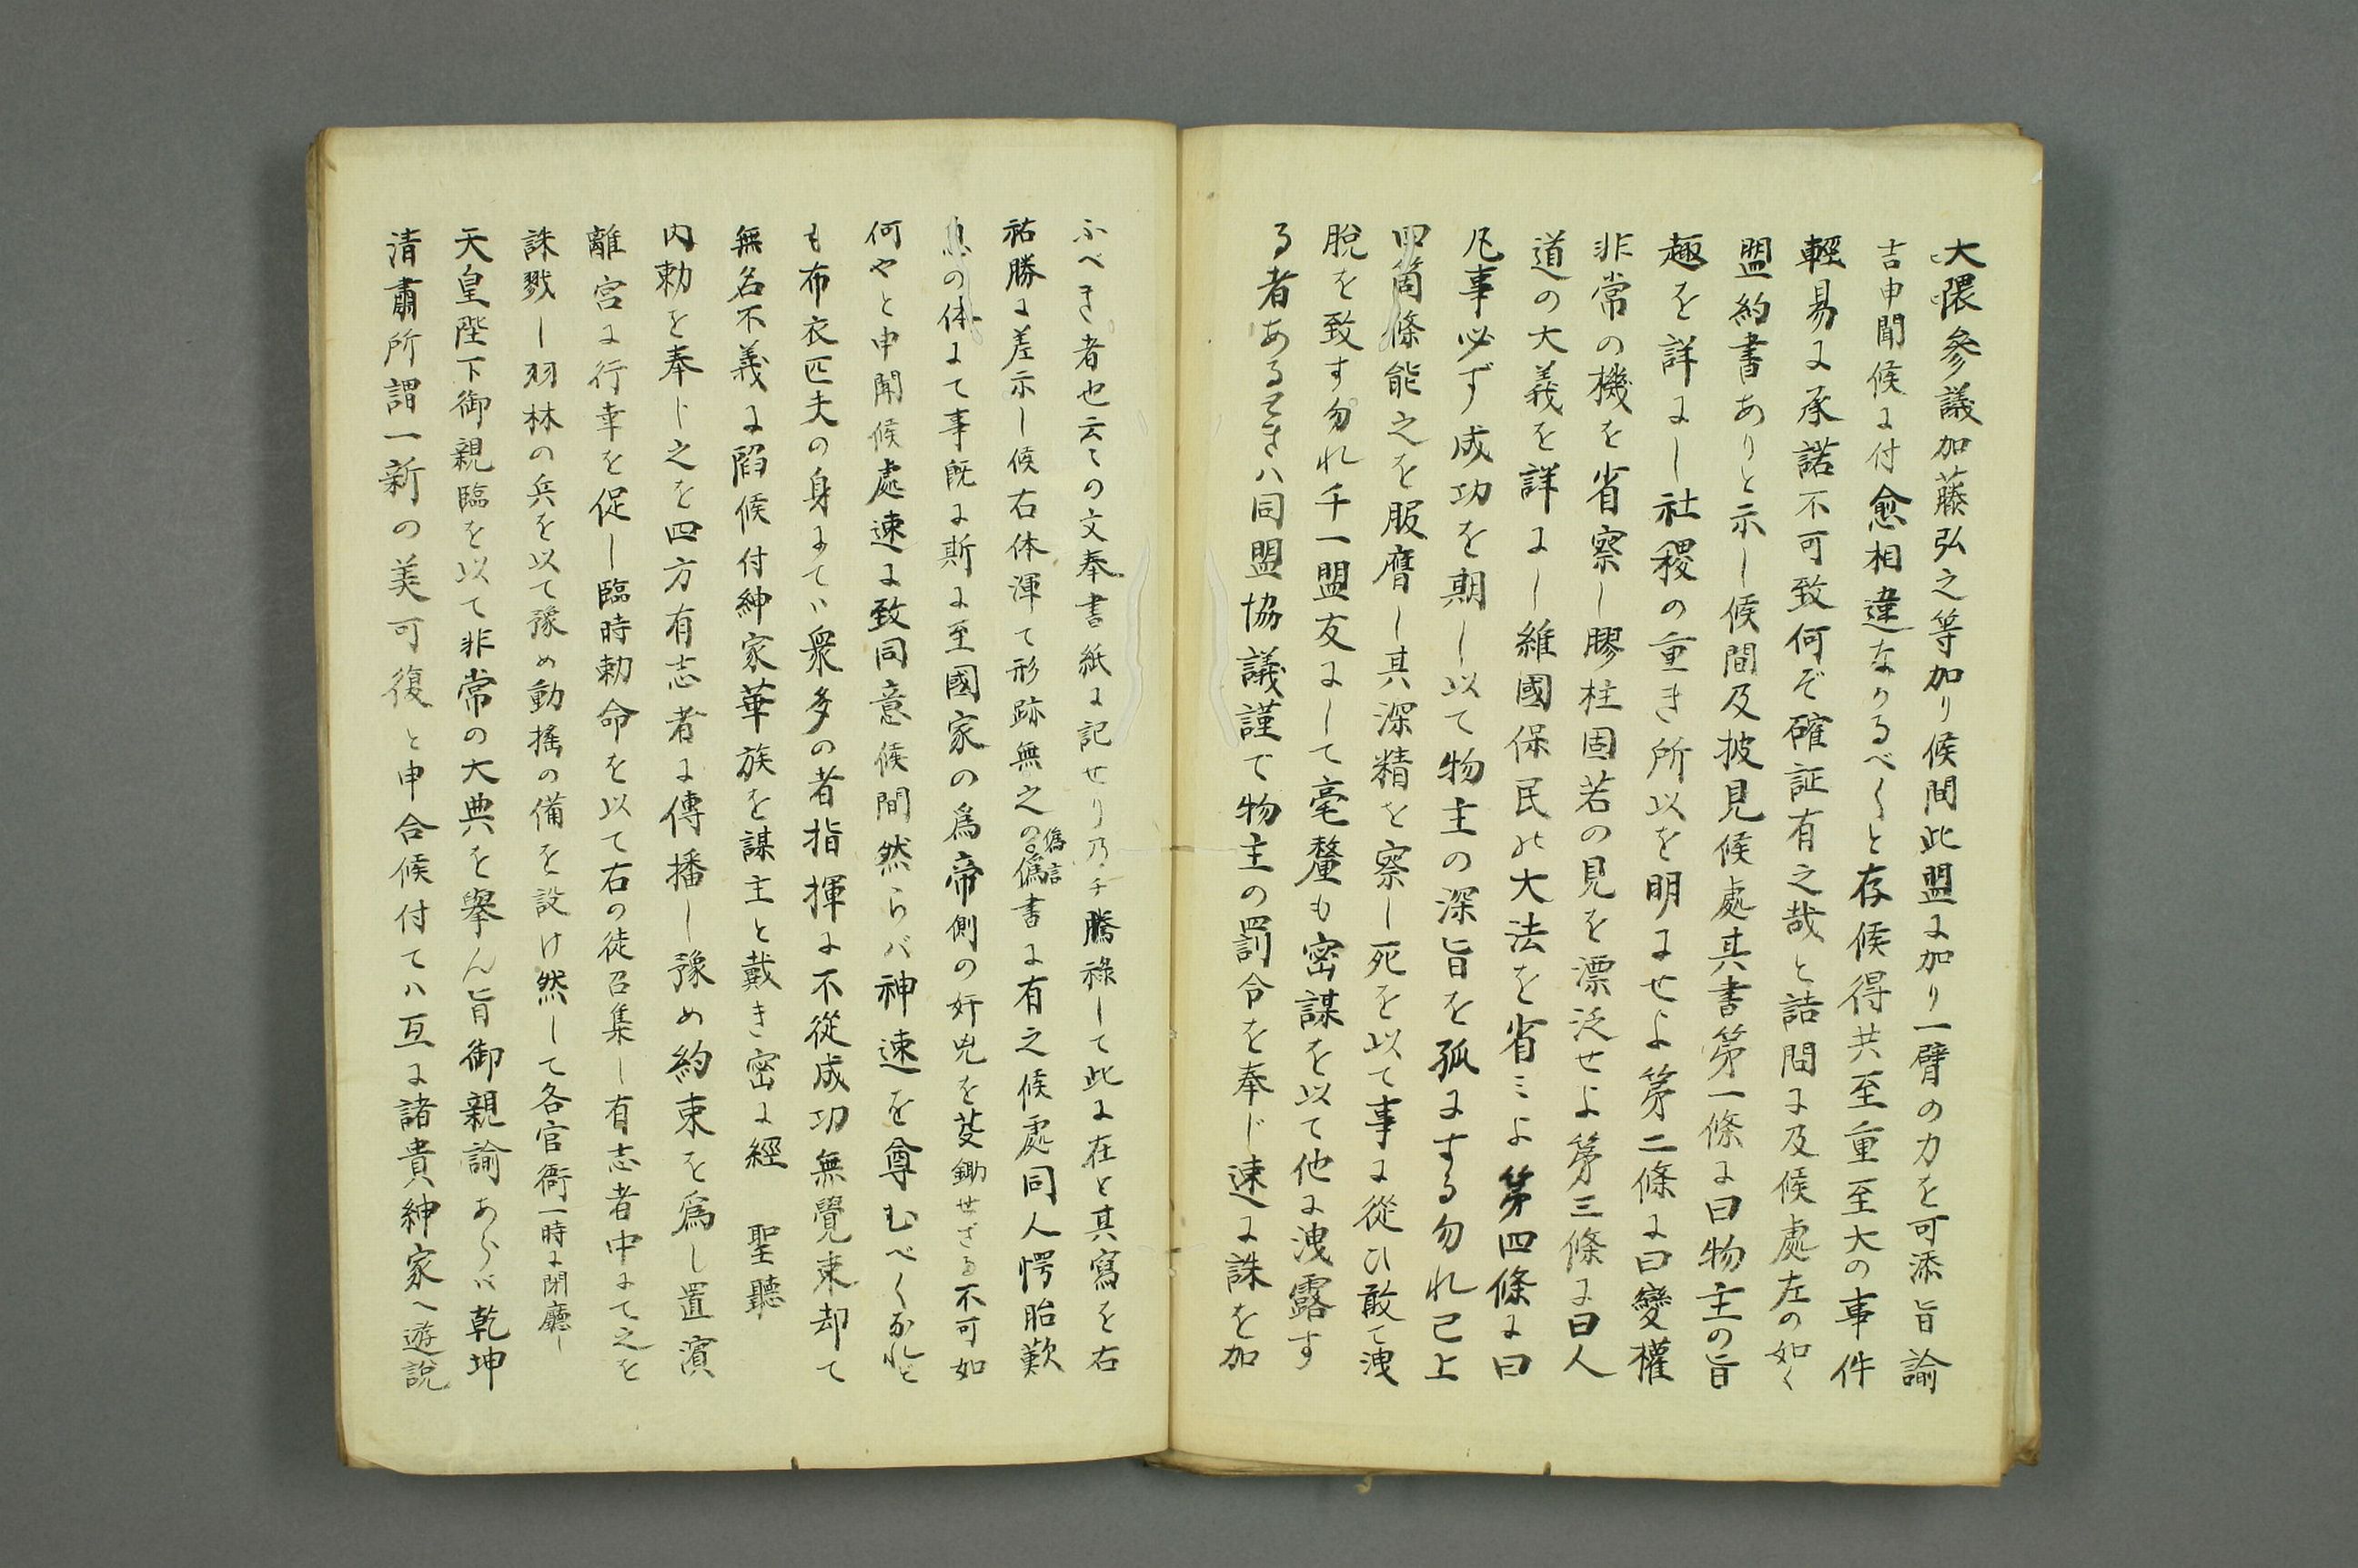 大隈參議加藤弘之等加り候間此盟に加り一臂の力を可添旨諭
吉申聞候に付愈相違なかるべしと存候得共至重至大の事件
輕易に承諾不可致何ぞ確証有之哉と詰問に及候處左の如く
盟約書ありと示し候間及披見候處其書第一條に曰物主の旨
趣を詳にし社稷の重き所以を明にせよ第二條に曰變權
非常の機を省察し膠柱固若の見を漂泛せよ第三條に曰人
道の大義を詳にし維國保民の大法を省ミよ第四條に曰
凡事必ず成功を期し以て物主の深旨を孤にする勿れ已上
四箇條能之を服膺し其深精を察し死を以て事に從ひ敢て洩
脫を致す勿れ千一盟友にして毫釐も密謀を以て他に洩露す
る者あるときハ同盟協議謹で物主の罰令を奉じ速に誅を加
ふべき者也云々の文奉書紙に記せり乃チ騰祿して此に在と其寫を右
祐勝に差示し候右体渾て形跡無之の偽言偽書に有之候處同人愕胎歎
息の体にて事既に斯に至國家の爲帝側の奸兇を芟鋤せざる不可如
何やと申聞候處速に致同意候間然らバ神速を尊むべくなれと
も布衣匹夫の身にてハ衆多の者指揮に不從成功無覺束却て
無名不義に陷候付紳家華族を謀主と戴き密に經 聖聽
内勅を奉じ之を四方有志者に傳播し豫め約束を爲し置濱
離宮に行幸を促し臨時勅命を以て右の徒召集し有志者中にて之を
誅戮し羽林の兵を以て豫め動搖の備を設け然して各官衙一時に閉廳し
天皇陛下御親臨を以て非常の大典を擧ん旨御親諭あらバ乾坤
清肅所謂一新の美可復と申合候付てハ互に諸貴紳家へ遊說